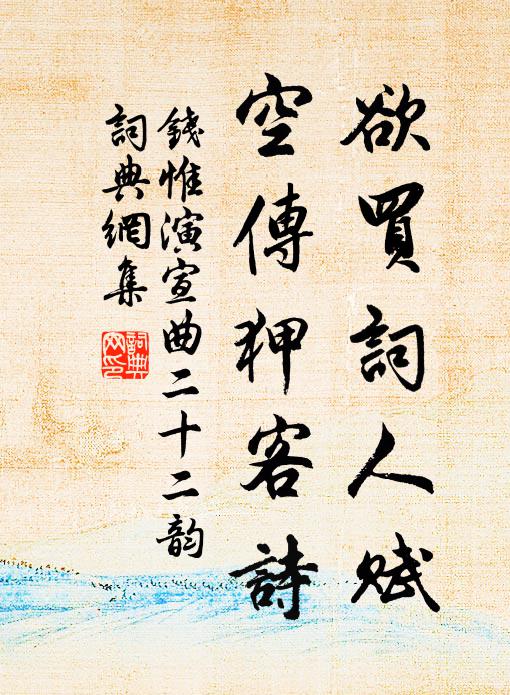 欲買詞人賦
空傳狎客詩
錢惟演宣曲二十二韵
詞典網集
詞典网印